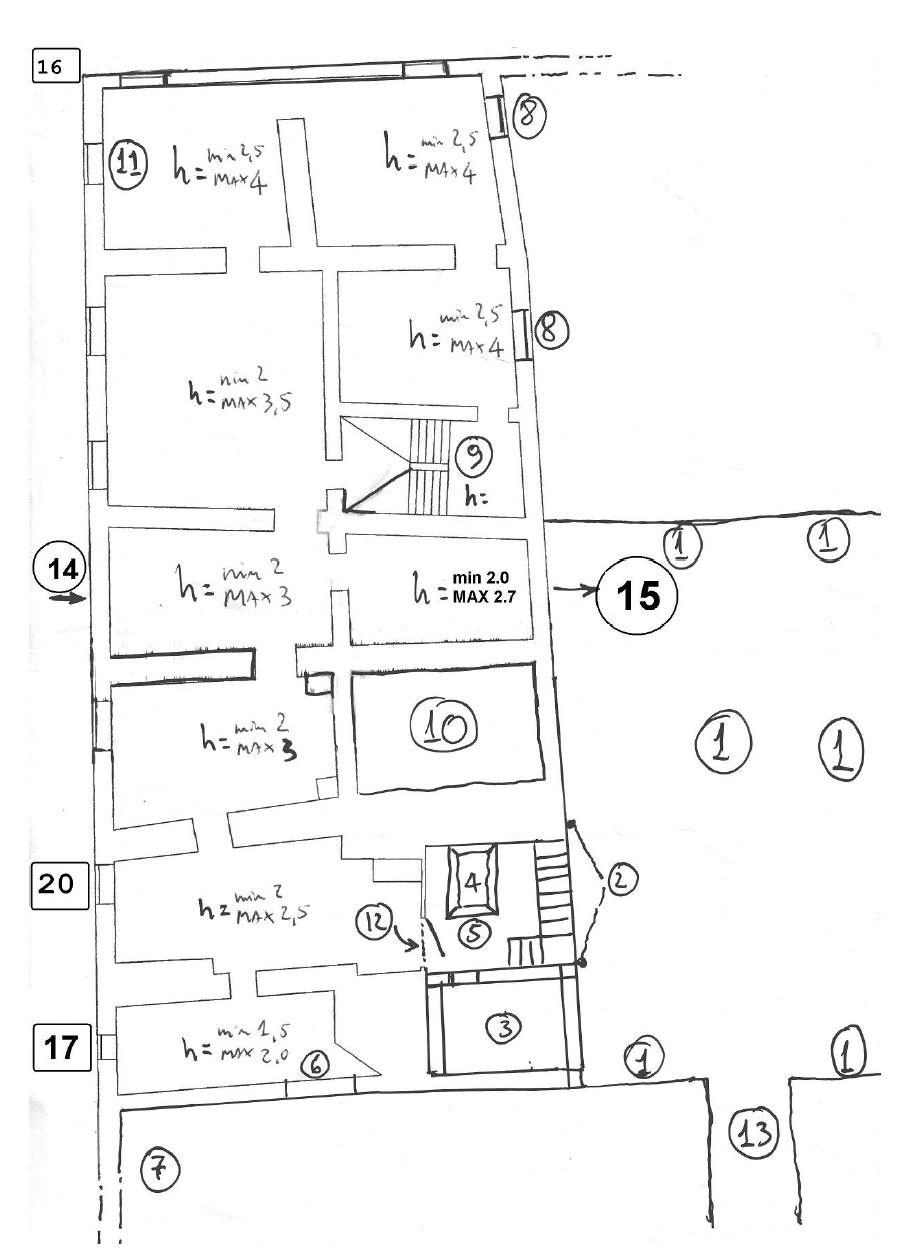 16
8
11
h= min 2,5
MAX 4
h= min 2,5
MAX 4
8
h= min 2,5
MAX 4
h= min 2
MAX 3,5
9
h=
1
1
14
h= min 2
MAX 3
h= min 2.0
MAX 2.7
15
10
1
1
h= min 2
MAX 3
20
4
2
h= min 2
MAX 2,5
12
5
17
3
h= min 1,5
MAX 2,0
6
1
1
13
7